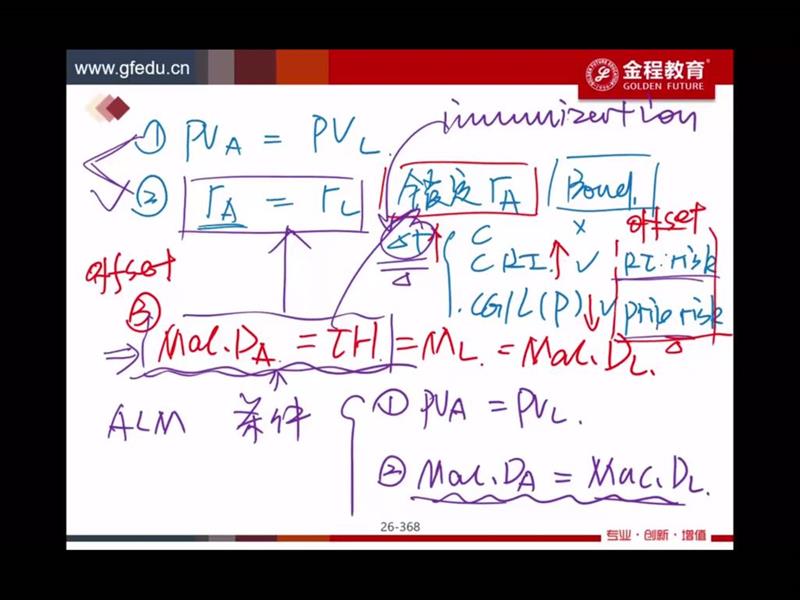 www.gfedu.cn
金程教育®
GOLDEN FUTURE
immunization
① PVA = PVL
② rA = rL 锁定 rA Bond.
offset
Δr↑ C
CRI. ↑ ✓ RI. risk
CG/L(P) ↓ ✓ price risk
offset
③ Mac.DA = IH = ML = Mac.DL.
ALM 条件
① PVA = PVL.
② Mac.DA = Mac.DL.
26-368
专业·创新·增值